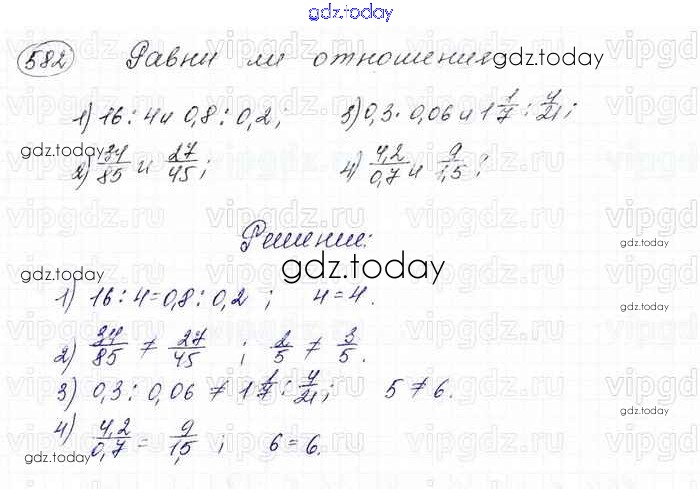 gdz.today
582 Равни ли отношения gdz.today
1) 16 : 4 и 0,8 : 0,2; 3) 0,3 · 0,06 и 1 1/7 : 4/21;
gdz.today
2) 34/85 и 27/45; 4) 4,2/0,7 и 9/1,5;
Решение:
gdz.today
gdz.today
1) 16 : 4 = 0,8 : 0,2 ; 4 = 4.
2) 34/85 ≠ 27/45 ; 2/5 ≠ 3/5.
3) 0,3 : 0,06 ≠ 1 1/7 : 4/21; 5 ≠ 6.
4) 4,2/0,7 = 9/1,5 ; 6 = 6.
gdz.today
gdz.today